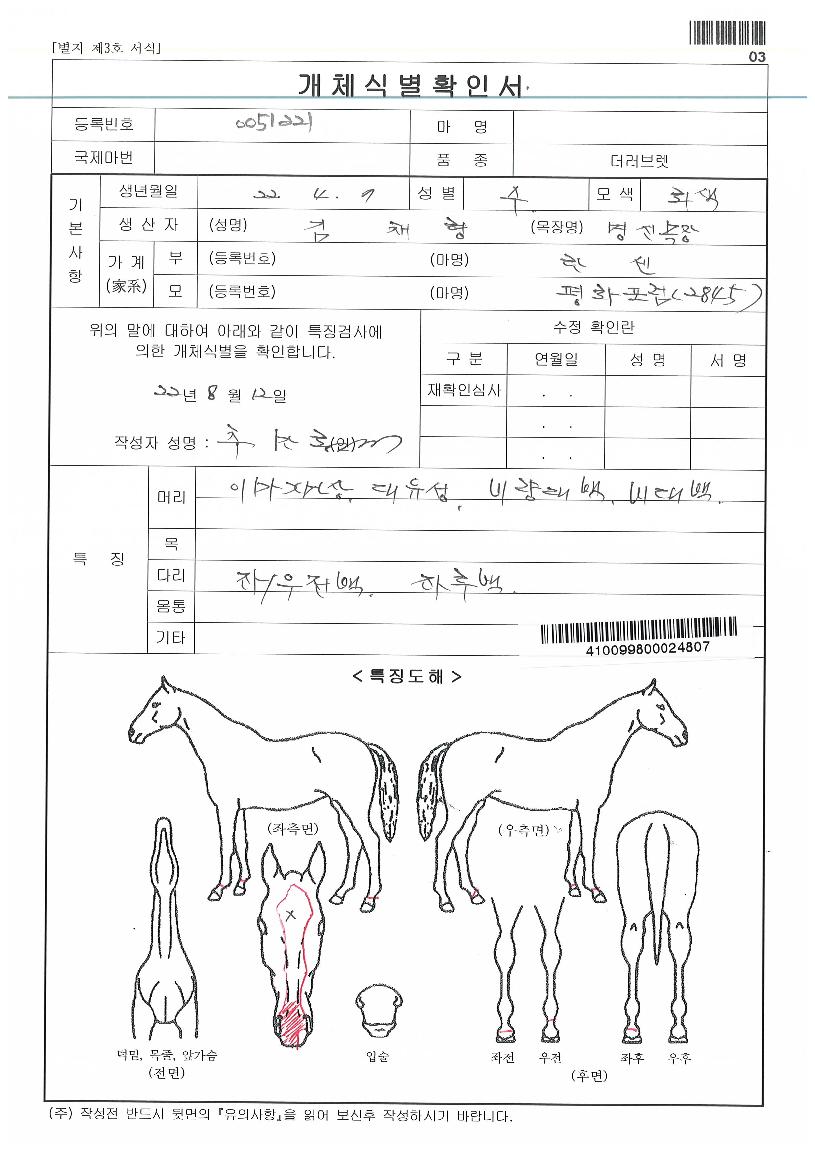 「별지 제3호 서식」
03
개체식별확인서
등록번호 0051221 마 명
국제마번 품 종 더러브렛
기본사항
생년월일 22. 4. 9 성별 수 모색 회색
생산자 (성명) 김 채 형 (목장명) 명진목장
가계 (家系) 부 (등록번호) (마명) 한센
모 (등록번호) (마명) 평화포럼(2845)
위의 말에 대하여 아래와 같이 특징검사에
의한 개체식별을 확인합니다.
22년 8월 12일
작성자 성명 : (인)
수정 확인란
구 분 연월일 성 명 서 명
재확인심사 . .
. .
. .
특 징
머리 이마자연상, 대유성, 비량대백, 비대백.
목
다리 좌/우전백. 좌후백.
몸통
기타
410099800024807
< 특징도해 >
(좌측면) (우측면)
턱밑, 목줄, 앞가슴 입술 좌전 우전 좌후 우후
(전면) (후면)
(주) 작성전 반드시 뒷면의 『유의사항』을 읽어 보신후 작성하시기 바랍니다.